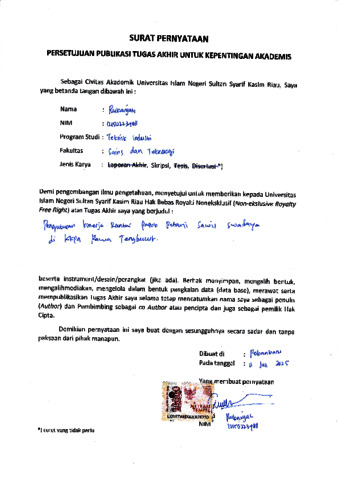 SURAT PERNYATAAN
PERSETUJUAN PUBLIKASI TUGAS AKHIR UNTUK KEPENTINGAN AKADEMIS
Sebagai Civitas Akademik Universitas Islam Negeri Sultan Syarif Kasim Riau, Saya
yang betanda tangan dibawah ini :
Nama :
NIM :
Program Studi : Teknik Industri
Fakultas : Sains dan Teknologi
Jenis Karya : Laporan Akhir, Skripsi, Tesis, Disertasi *)
Demi pengembangan ilmu pengetahuan, menyetujui untuk memberikan kepada Universitas
Islam Negeri Sultan Syarif Kasim Riau Hak Bebas Royalti Noneksklusif (Non-ekslusive Royalty
Free Right) atan Tugas Akhir saya yang berjudul :
Petani Sawit Swadaya
di
beserta instrument/desain/perangkat (jika ada). Berhak menyimpan, mengalih bentuk,
mengalihmodiakan, mengelola dalam bentuk pangkalan data (data base), merawat serta
mempublikasikan Tugas Akhir saya selama tetap mencatumkan nama saya sebagai penulis
(Author) dan Pembimbing sebagai co Author atau pencipta dan juga sebagai pemilik Hak
Cipta.
Demikian pernyataan ini saya buat dengan sesungguhnya secara sadar dan tanpa
paksaan dari pihak manapun.
Dibuat di : Pekanbaru
Pada tanggal : 2025
Yang membuat pernyataan
NIM
*) coret yang tidak perlu